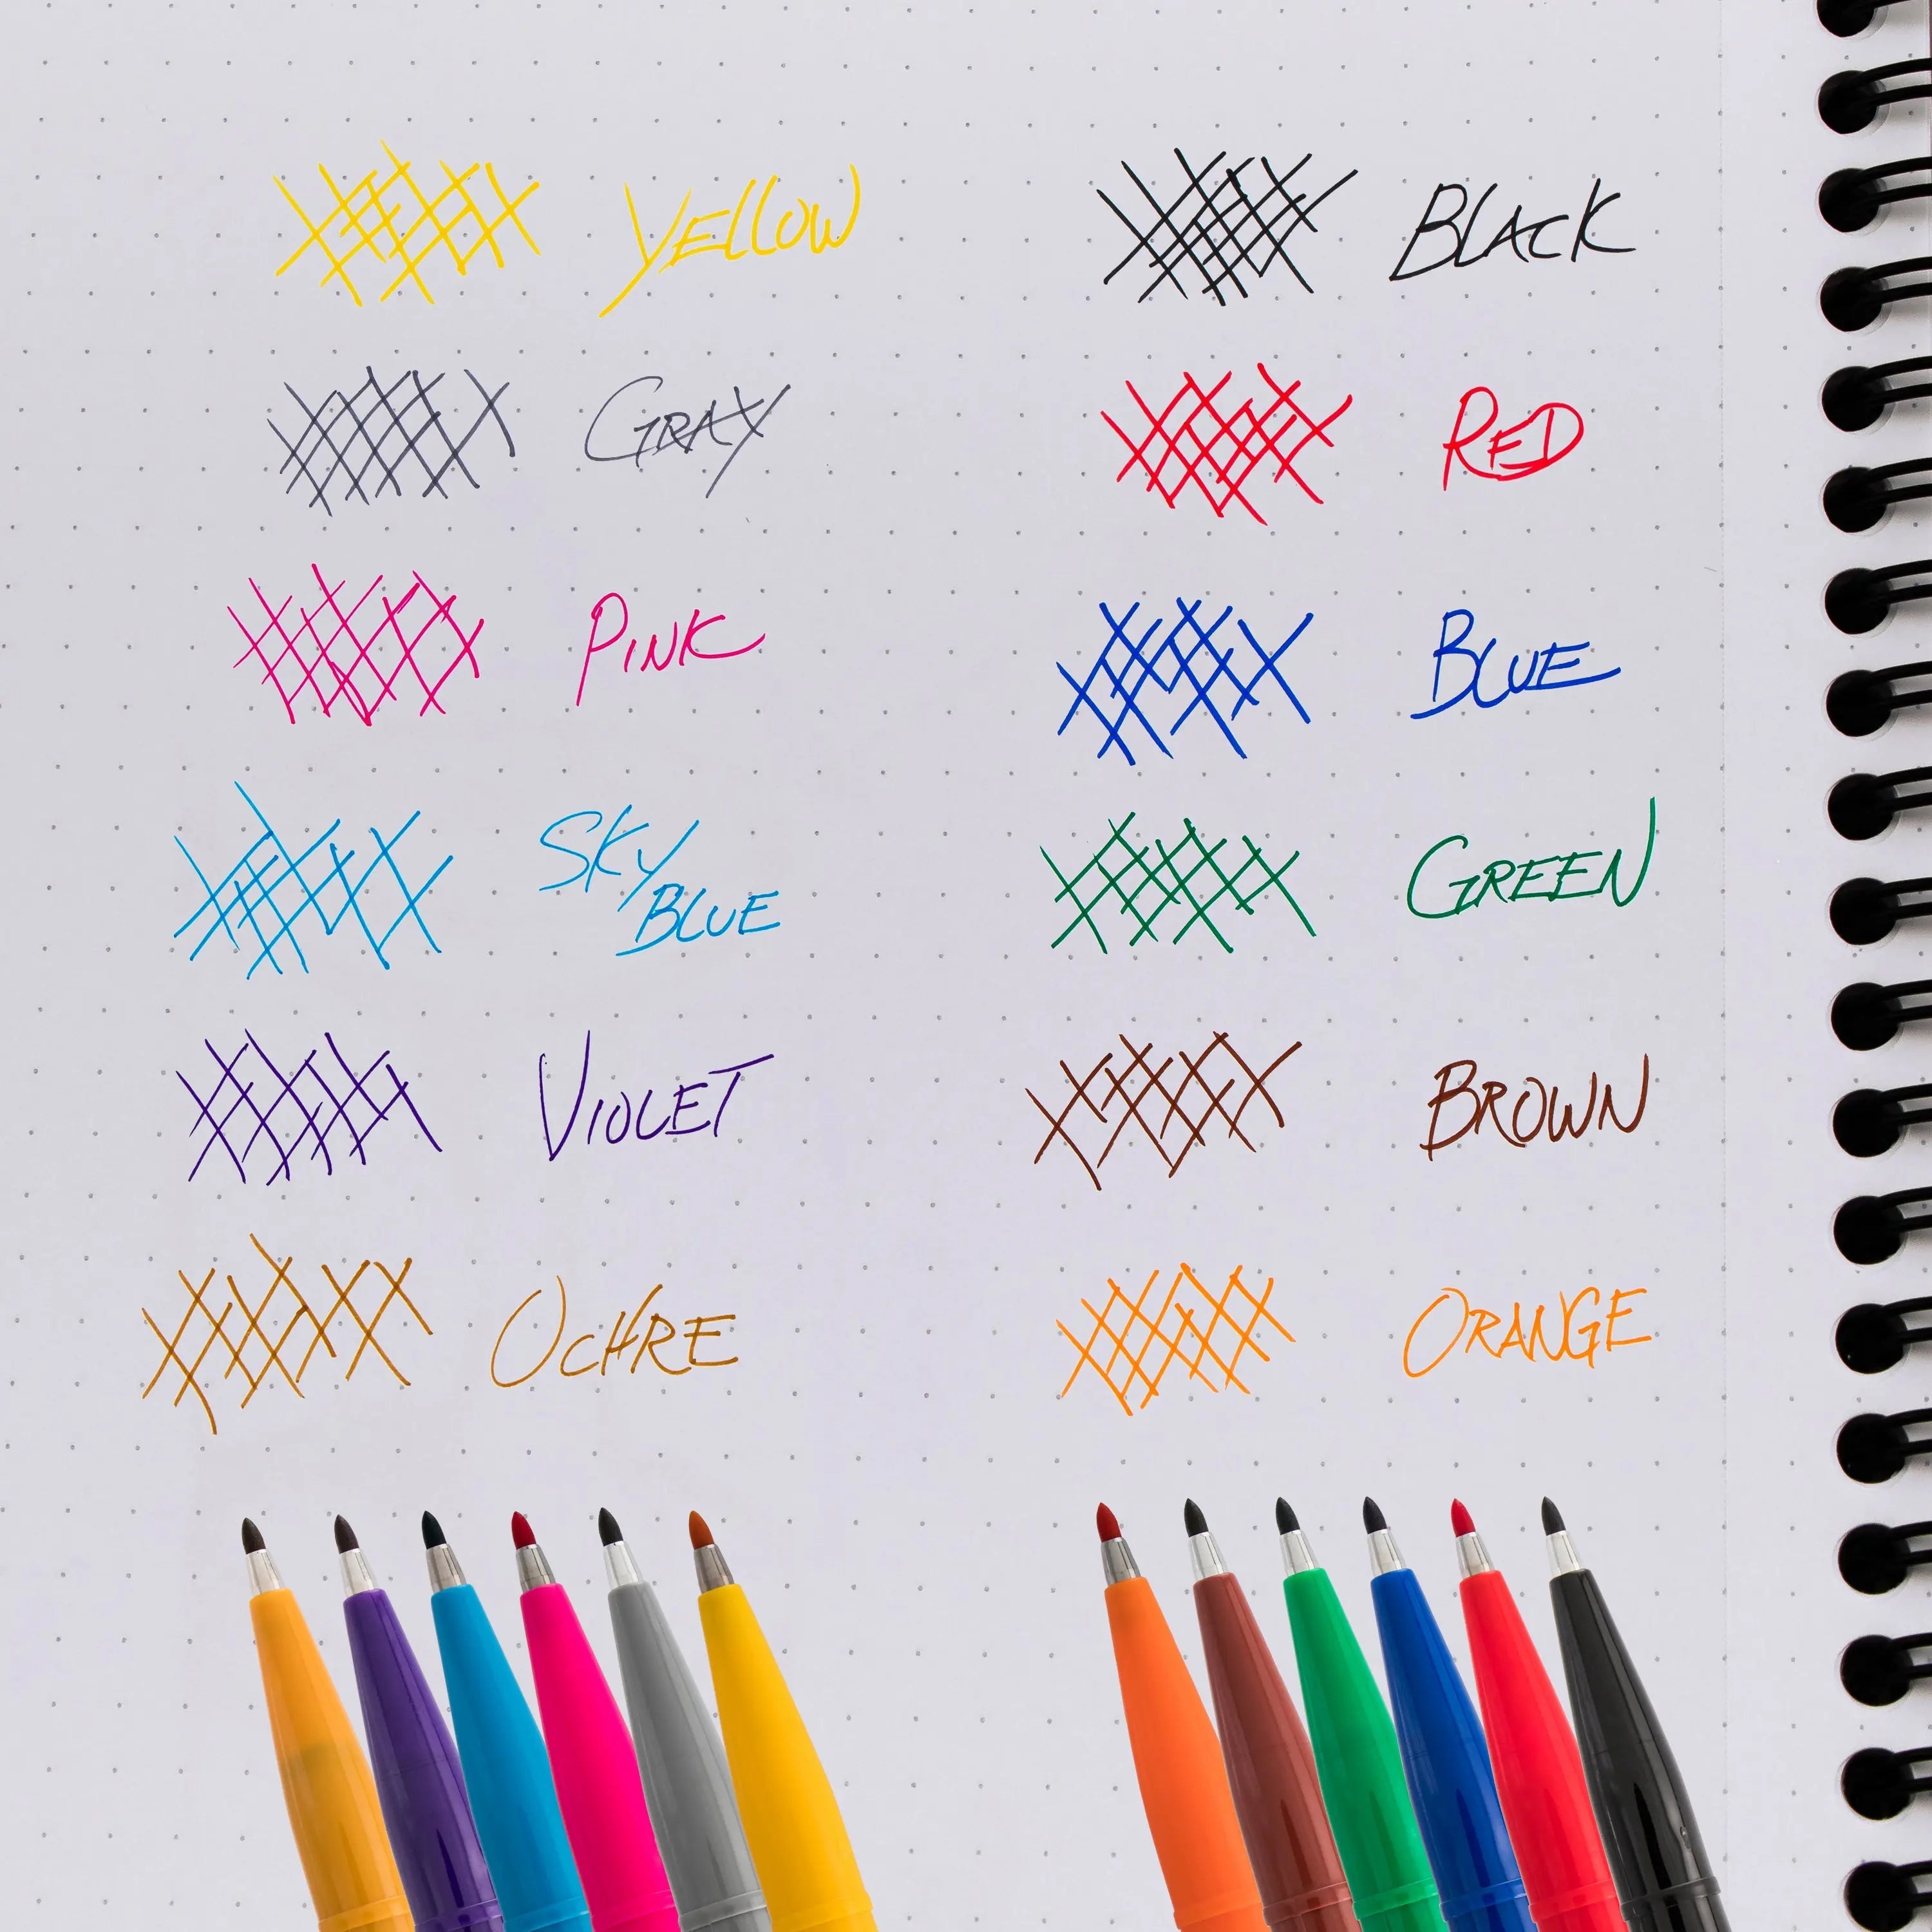 YELLOW
BLACK
GRAY
RED
PINK
BLUE
SKY
BLUE
GREEN
VIOLET
BROWN
OCHRE
ORANGE